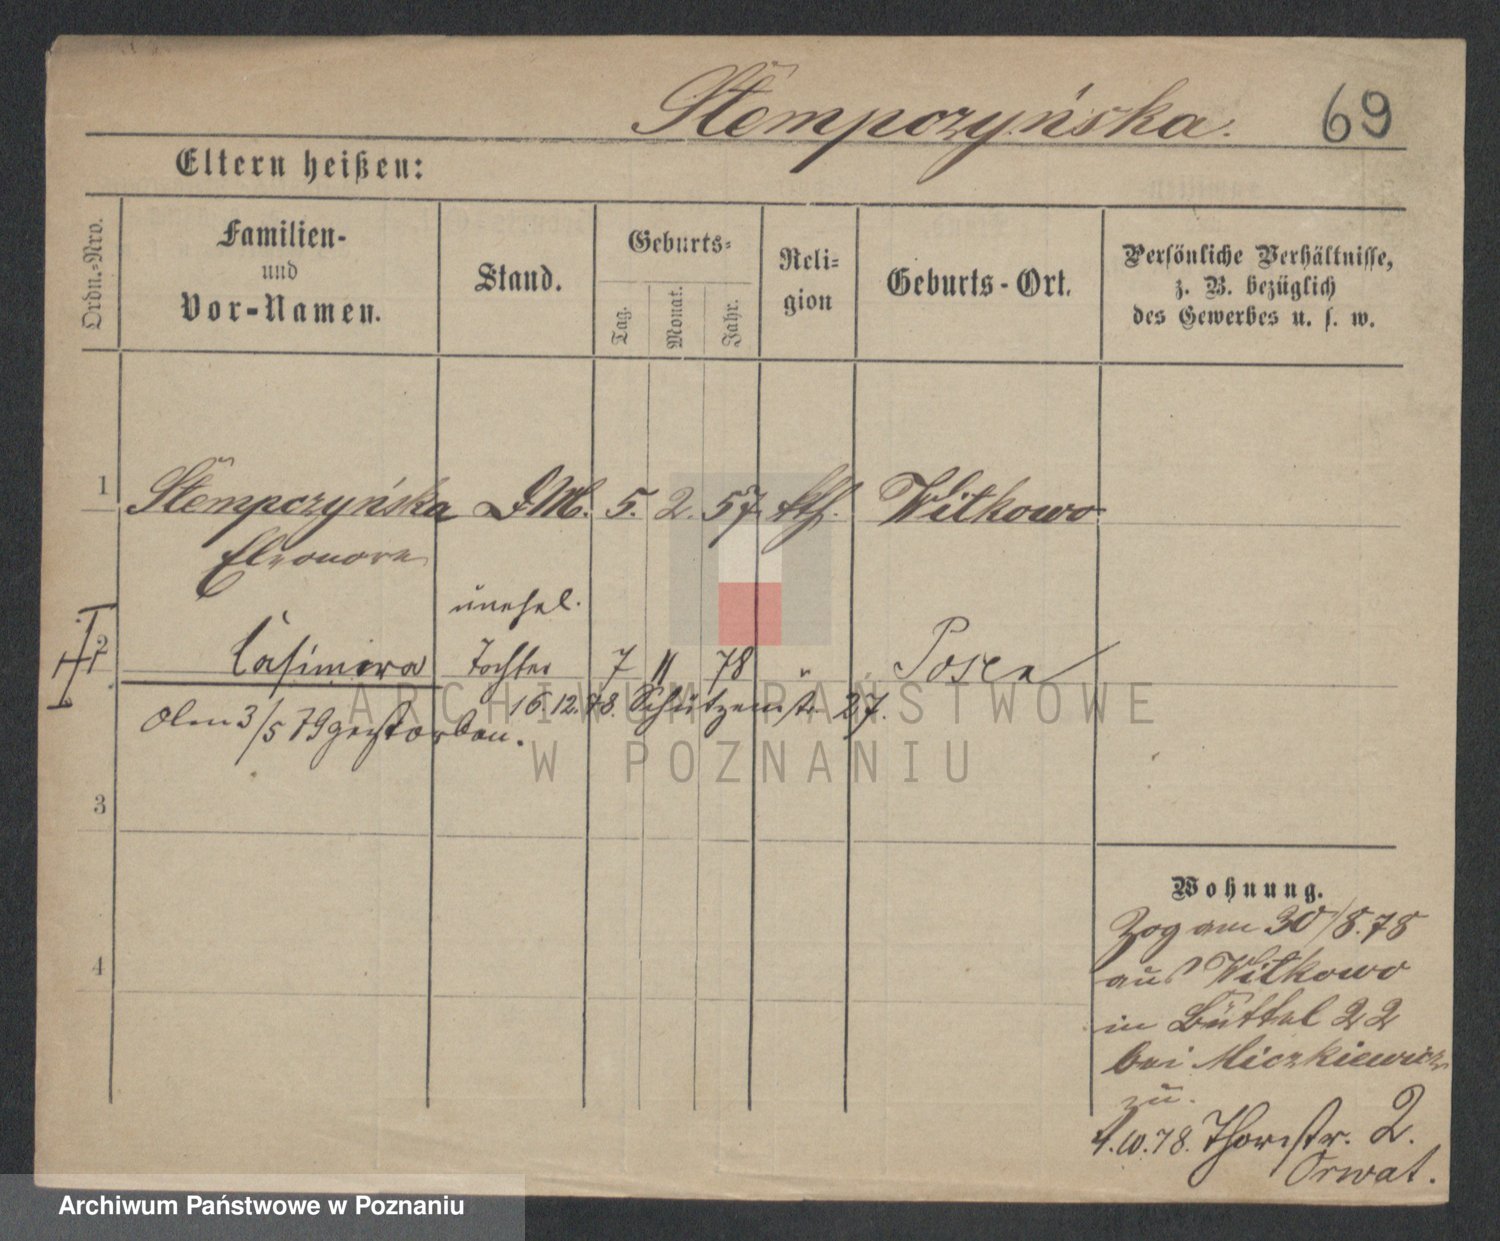 Stempczyńska. 69
Eltern heißen:
Ordn.=Nro.
Familien-
und
Vor-Namen.
Stand.
Geburts=
Tag.
Monat.
Jahr.
Reli=
gion
Geburts-Ort.
Persönliche Verhältnisse,
z. B. bezüglich
des Gewerbes u. s. w.
1 Stempczyńska D.M. 5. 2. 57. kth. Witkowo
Eleonore
unehel.
2 Casimira Tochter 7 11 78 " Posen
16.12.78. Schützenstr. 27.
3/5 79 gestorben.
3
4
Wohnung.
Zog am 30/8.78
aus Witkowo
in Büttel 22
bei Miczkiewicz
zu.
4.10.78. Thorstr. 2.
Orwat.
ARCHIWUM PAŃSTWOWE
W POZNANIU
Archiwum Państwowe w Poznaniu